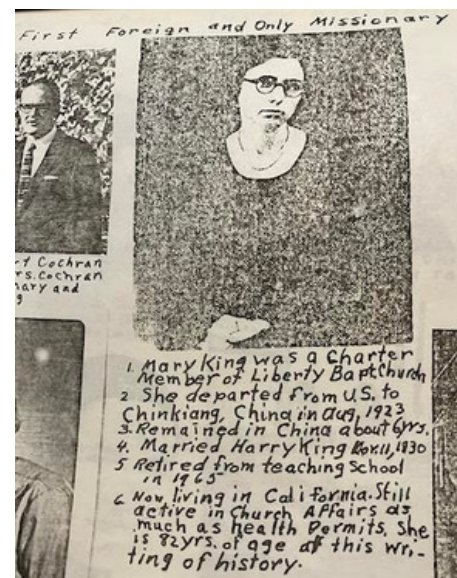 First Foreign and Only Missionary
rt Cochran
rs. Cochran
nary and
g
1. Mary King was a Charter
Member of Liberty Bapt Church
2 She departed from U.S. to
Chinkiang, China in Aug, 1923
3. Remained in China about 6yrs.
4. Married Harry King Nov. 11, 1830
5 Retired from teaching School
in 1965
6 Now living in California. Still
active in Church Affairs as
much as health Permits. She
is 82yrs. of age at this wri-
ting of history.